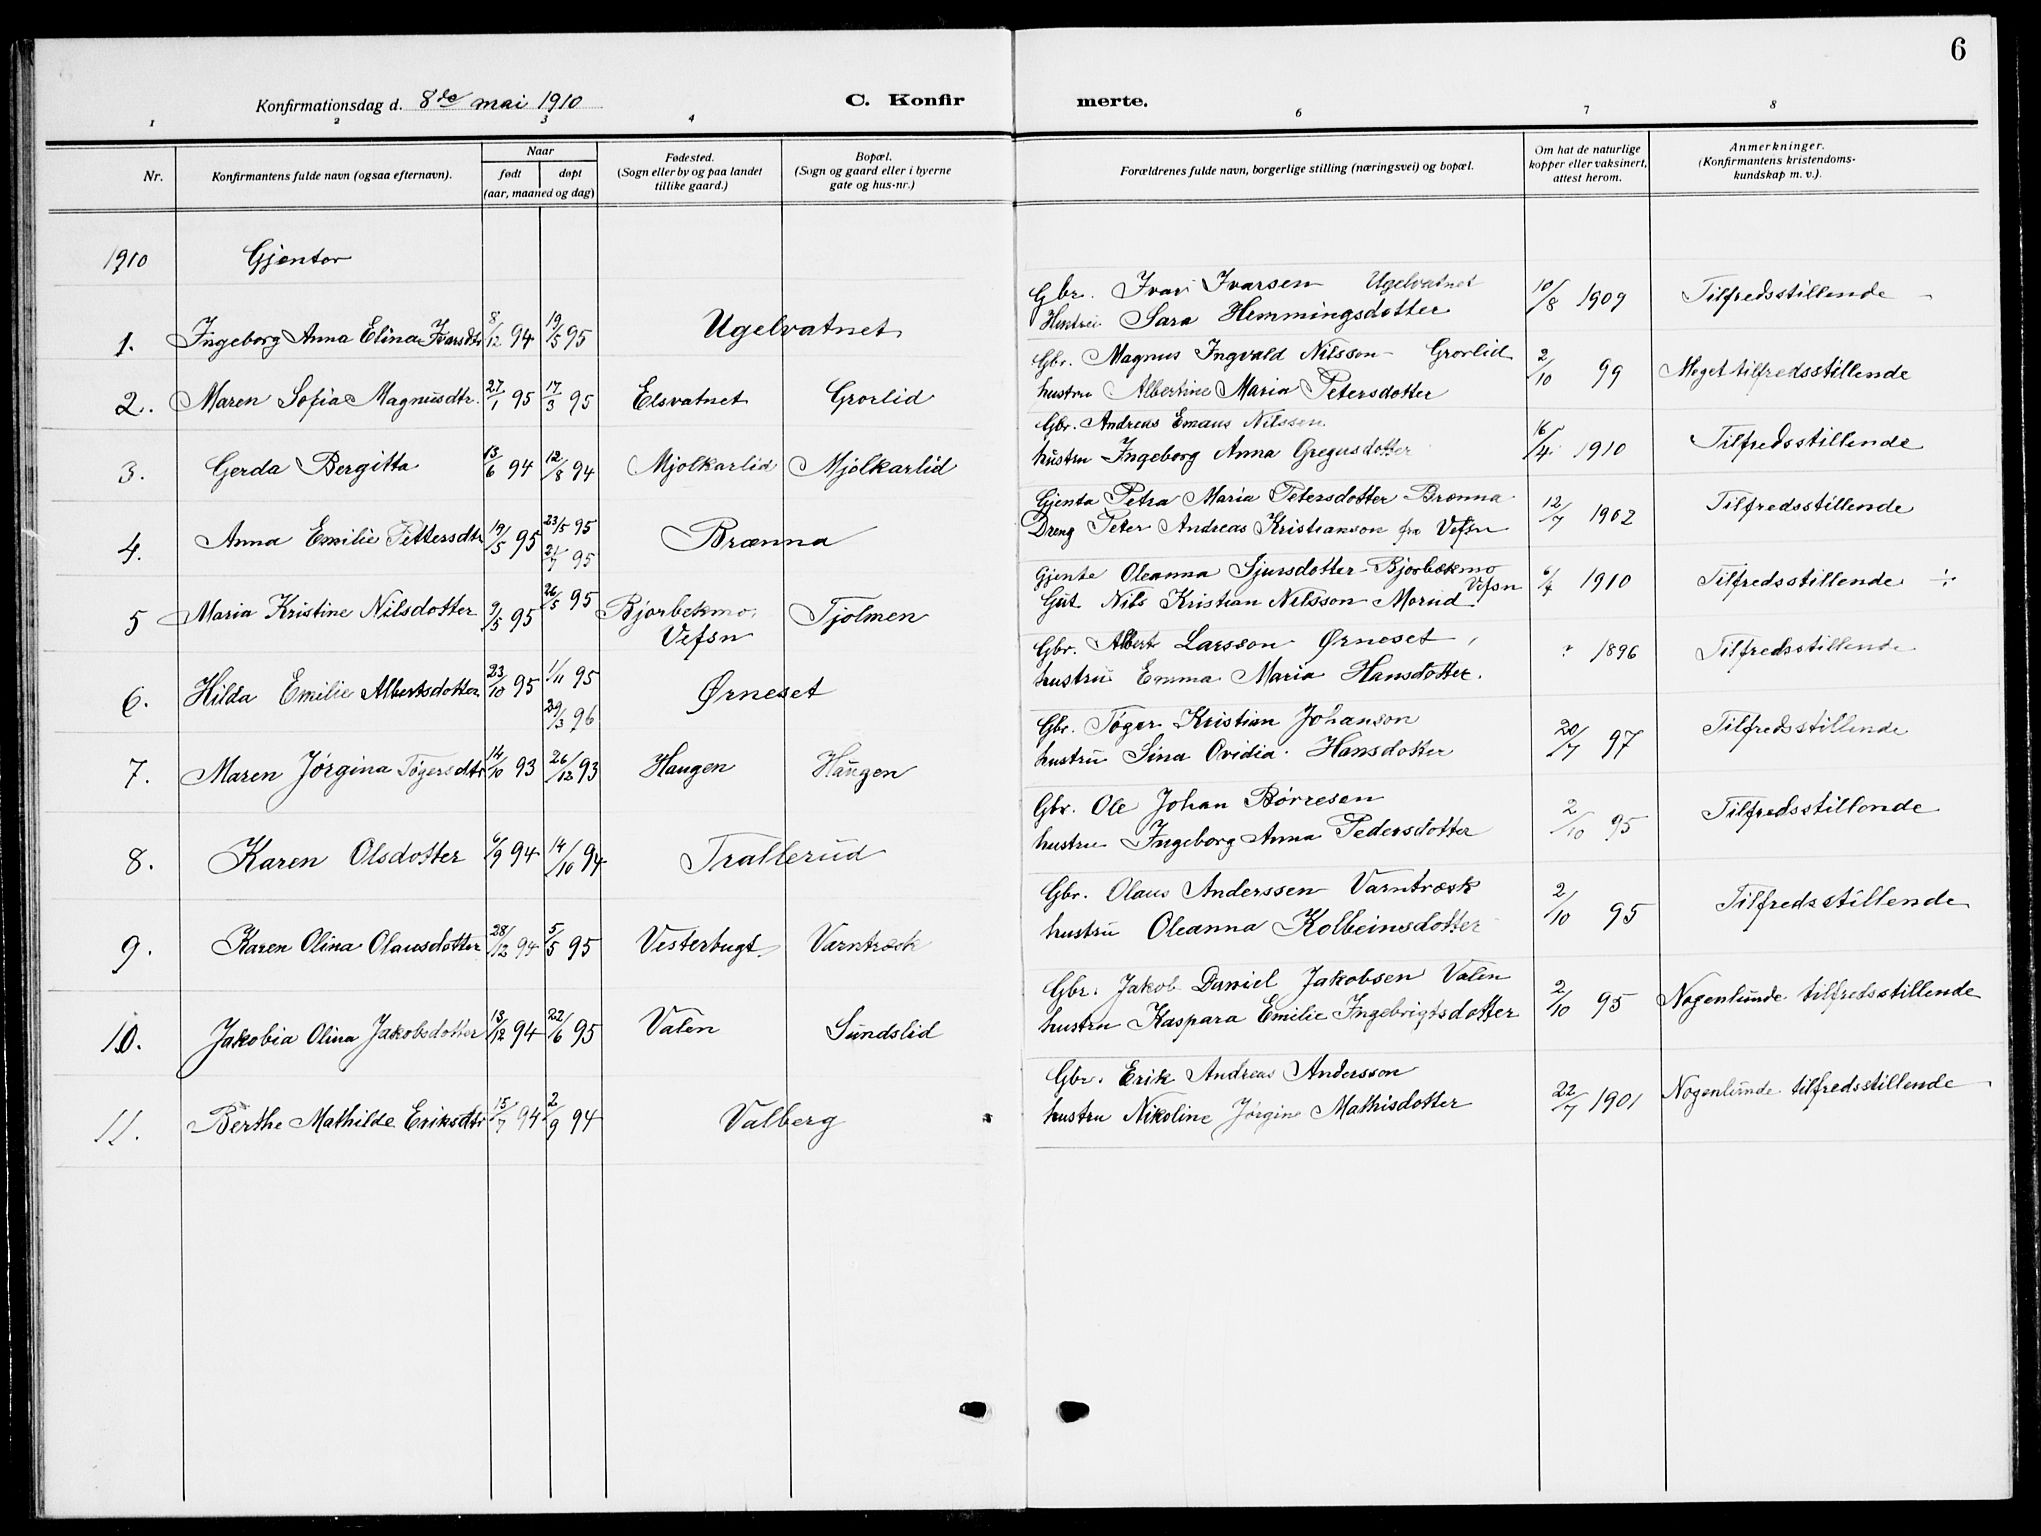 6
Konfirmationsdag d. 8de mai 1910
C. Konfir
merte.
1 2 3 4 6 7 8
Nr.
Konfirmantens fulde navn (ogsaa efternavn).
Naar
født døpt
(aar, maaned og dag)
Fødested.
(Sogn eller by og paa landet
tillike gaard.)
Bopæl.
(Sogn og gaard eller i byerne
gate og hus-nr.)
Forældrenes fulde navn, borgerlige stilling (næringsvei) og bopæl.
Om hat de naturlige
kopper eller vaksinert,
attest herom.
Anmerkninger.
(Konfirmantens kristendoms-
kundskap m. v.).
1910 Gjentor
1. Ingeborg Anna Elina Ivarsdtr 8/12 94 19/5 95 Ugelvatnet
Gbr. Ivar Ivarsen Ugelvatnet
Hustru Sara Hemmingsdotter
10/8 1909 Tilfredsstillende
2. Maren Sofia Magnusdtr. 27/1 95 17/3 95 Elsvatnet Grorlid
Gbr. Magnus Ingvald Nilsson Grorlid
hustru Albertine Maria Petersdotter
2/10 99 Meget tilfredsstillende
3. Gerda Bergitta 13/6 94 12/8 94 Mjolkarlid Mjolkarlid
Gbr. Andreas Emaus Nilssen
hustru Ingeborg Anna Gregusdotter
16/4 1910 Tilfredsstillende
4. Anna Emilie Pettersdtr 19/5 95 23/5 95 Brænna
21/7 95
Gjenta Petra Maria Petersdotter Brænna
Dreng Peter Andreas Kristianson fra Vefsn
12/7 1902 Tilfredsstillende
5 Maria Kristine Nilsdotter 9/5 95 26/5 95 Bjorbekmo, Tjolmen
Vefsn
Gjente Oleanna Sjursdotter Bjorbækmo
Vefsn
Gut Nils Kristian Nilsson Morud
6/4 1910 Tilfredsstillende ÷
6. Hilda Emilie Albertsdotter 23/10 95 1/11 95 Ørneset
29/3 96
Gbr. Albert Larsson Ørneset
hustru Emma Maria Hansdotter.
? 1896 Tilfredsstillende
7. Maren Jørgina Tøgersdtr 14/10 93 26/12 93 Haugen Haugen
Gbr. Tøger Kristian Johanson
hustru Sina Ovidia Hansdotter
20/7 97 Tilfredsstillende
8. Karen Olsdotter 6/9 94 14/10 94 Trallerud
Gbr. Ole Johan Børresen
hustru Ingeborg Anna Pedersdotter
2/10 95 Tilfredsstillende
9. Karen Olina Olausdotter 28/12 94 5/5 95 Vesterbugt Varntræsk
Gbr. Olaus Anderssen Varntræsk
hustru Oleanna Kolbeinsdotter
2/10 95 Tilfredsstillende
10. Jakobia Olina Jakobsdotter 13/12 94 22/6 95 Valen Sundslid
Gbr. Jakob Daniel Jakobsen Valen
hustru Kaspara Emilie Ingebrigtsdotter
2/10 95 Nogenlunde tilfredsstillende
11. Berthe Mathilde Eriksdtr 15/7 94 2/9 94 Valberg
Gbr. Erik Andreas Andersson
hustru Nikoline Jørgine Mathisdotter
22/7 1901 Nogenlunde tilfredsstillende